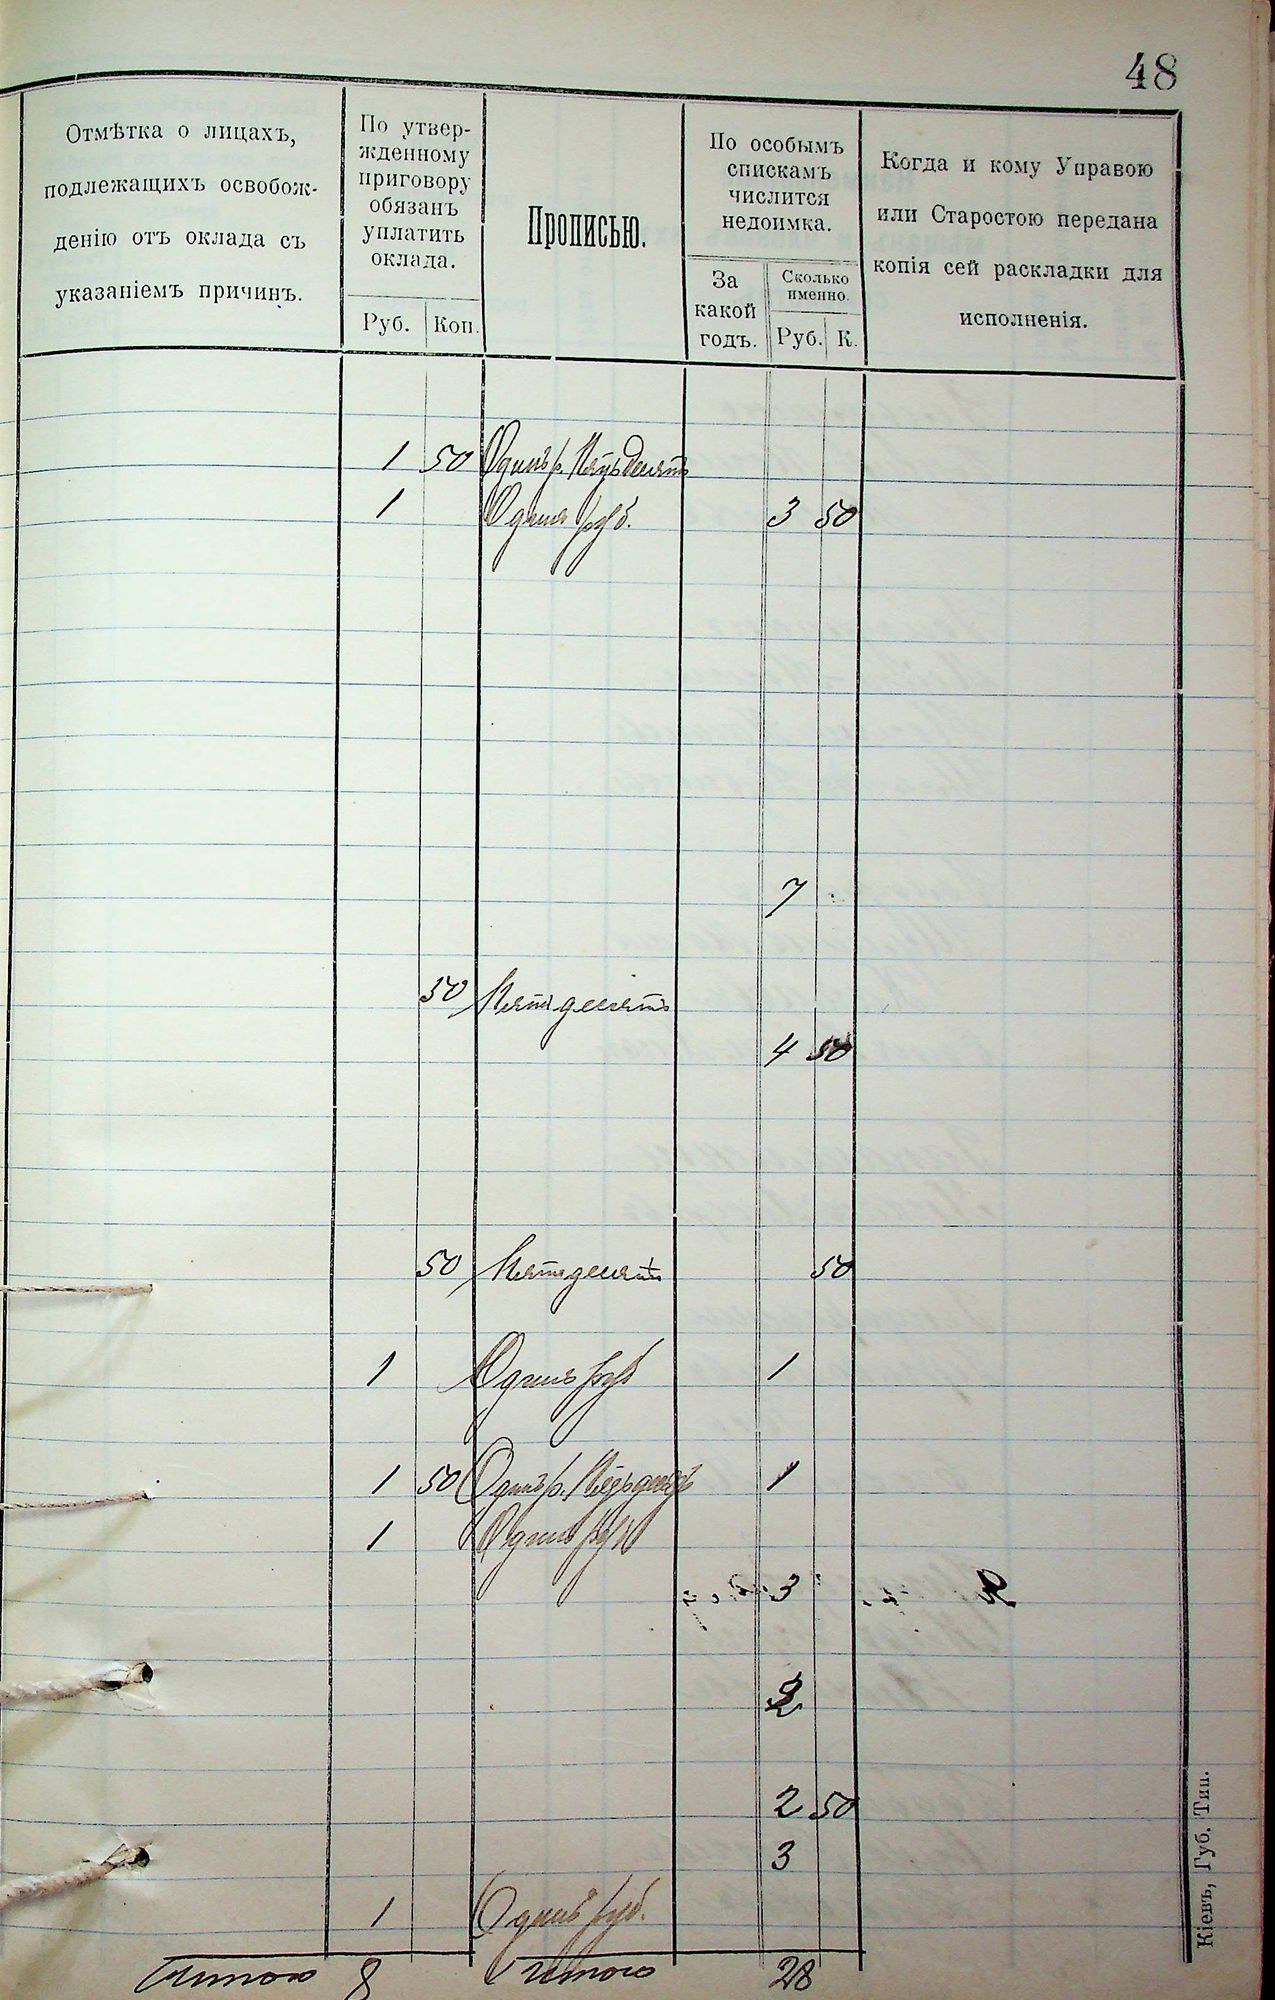 48
Отмѣтка о лицахъ,
подлежащихъ освобож-
денію отъ оклада съ
указаніемъ причинъ.
По утвер-
жденному
приговору
обязанъ
уплатить
оклада.
Руб. Коп.
Прописью.
По особымъ
спискамъ
числится
недоимка.
За
какой
годъ.
Сколько
именно.
Руб. К.
Когда и кому Управою
или Старостою передана
копія сей раскладки для
исполненія.
1 50 Одинъ р. Пятьдесятъ
1 Одинъ руб. 3 50
7
50 Пятьдесятъ
4 50
50 Пятьдесятъ 50
1 Одинъ руб 1
1 50 Одинъ р. Пятьдесятъ 1
1 Одинъ руб
3
2
2 50
3
1 Одинъ руб.
Итого 8 Итого 28
Кіевъ, Губ. Тип.